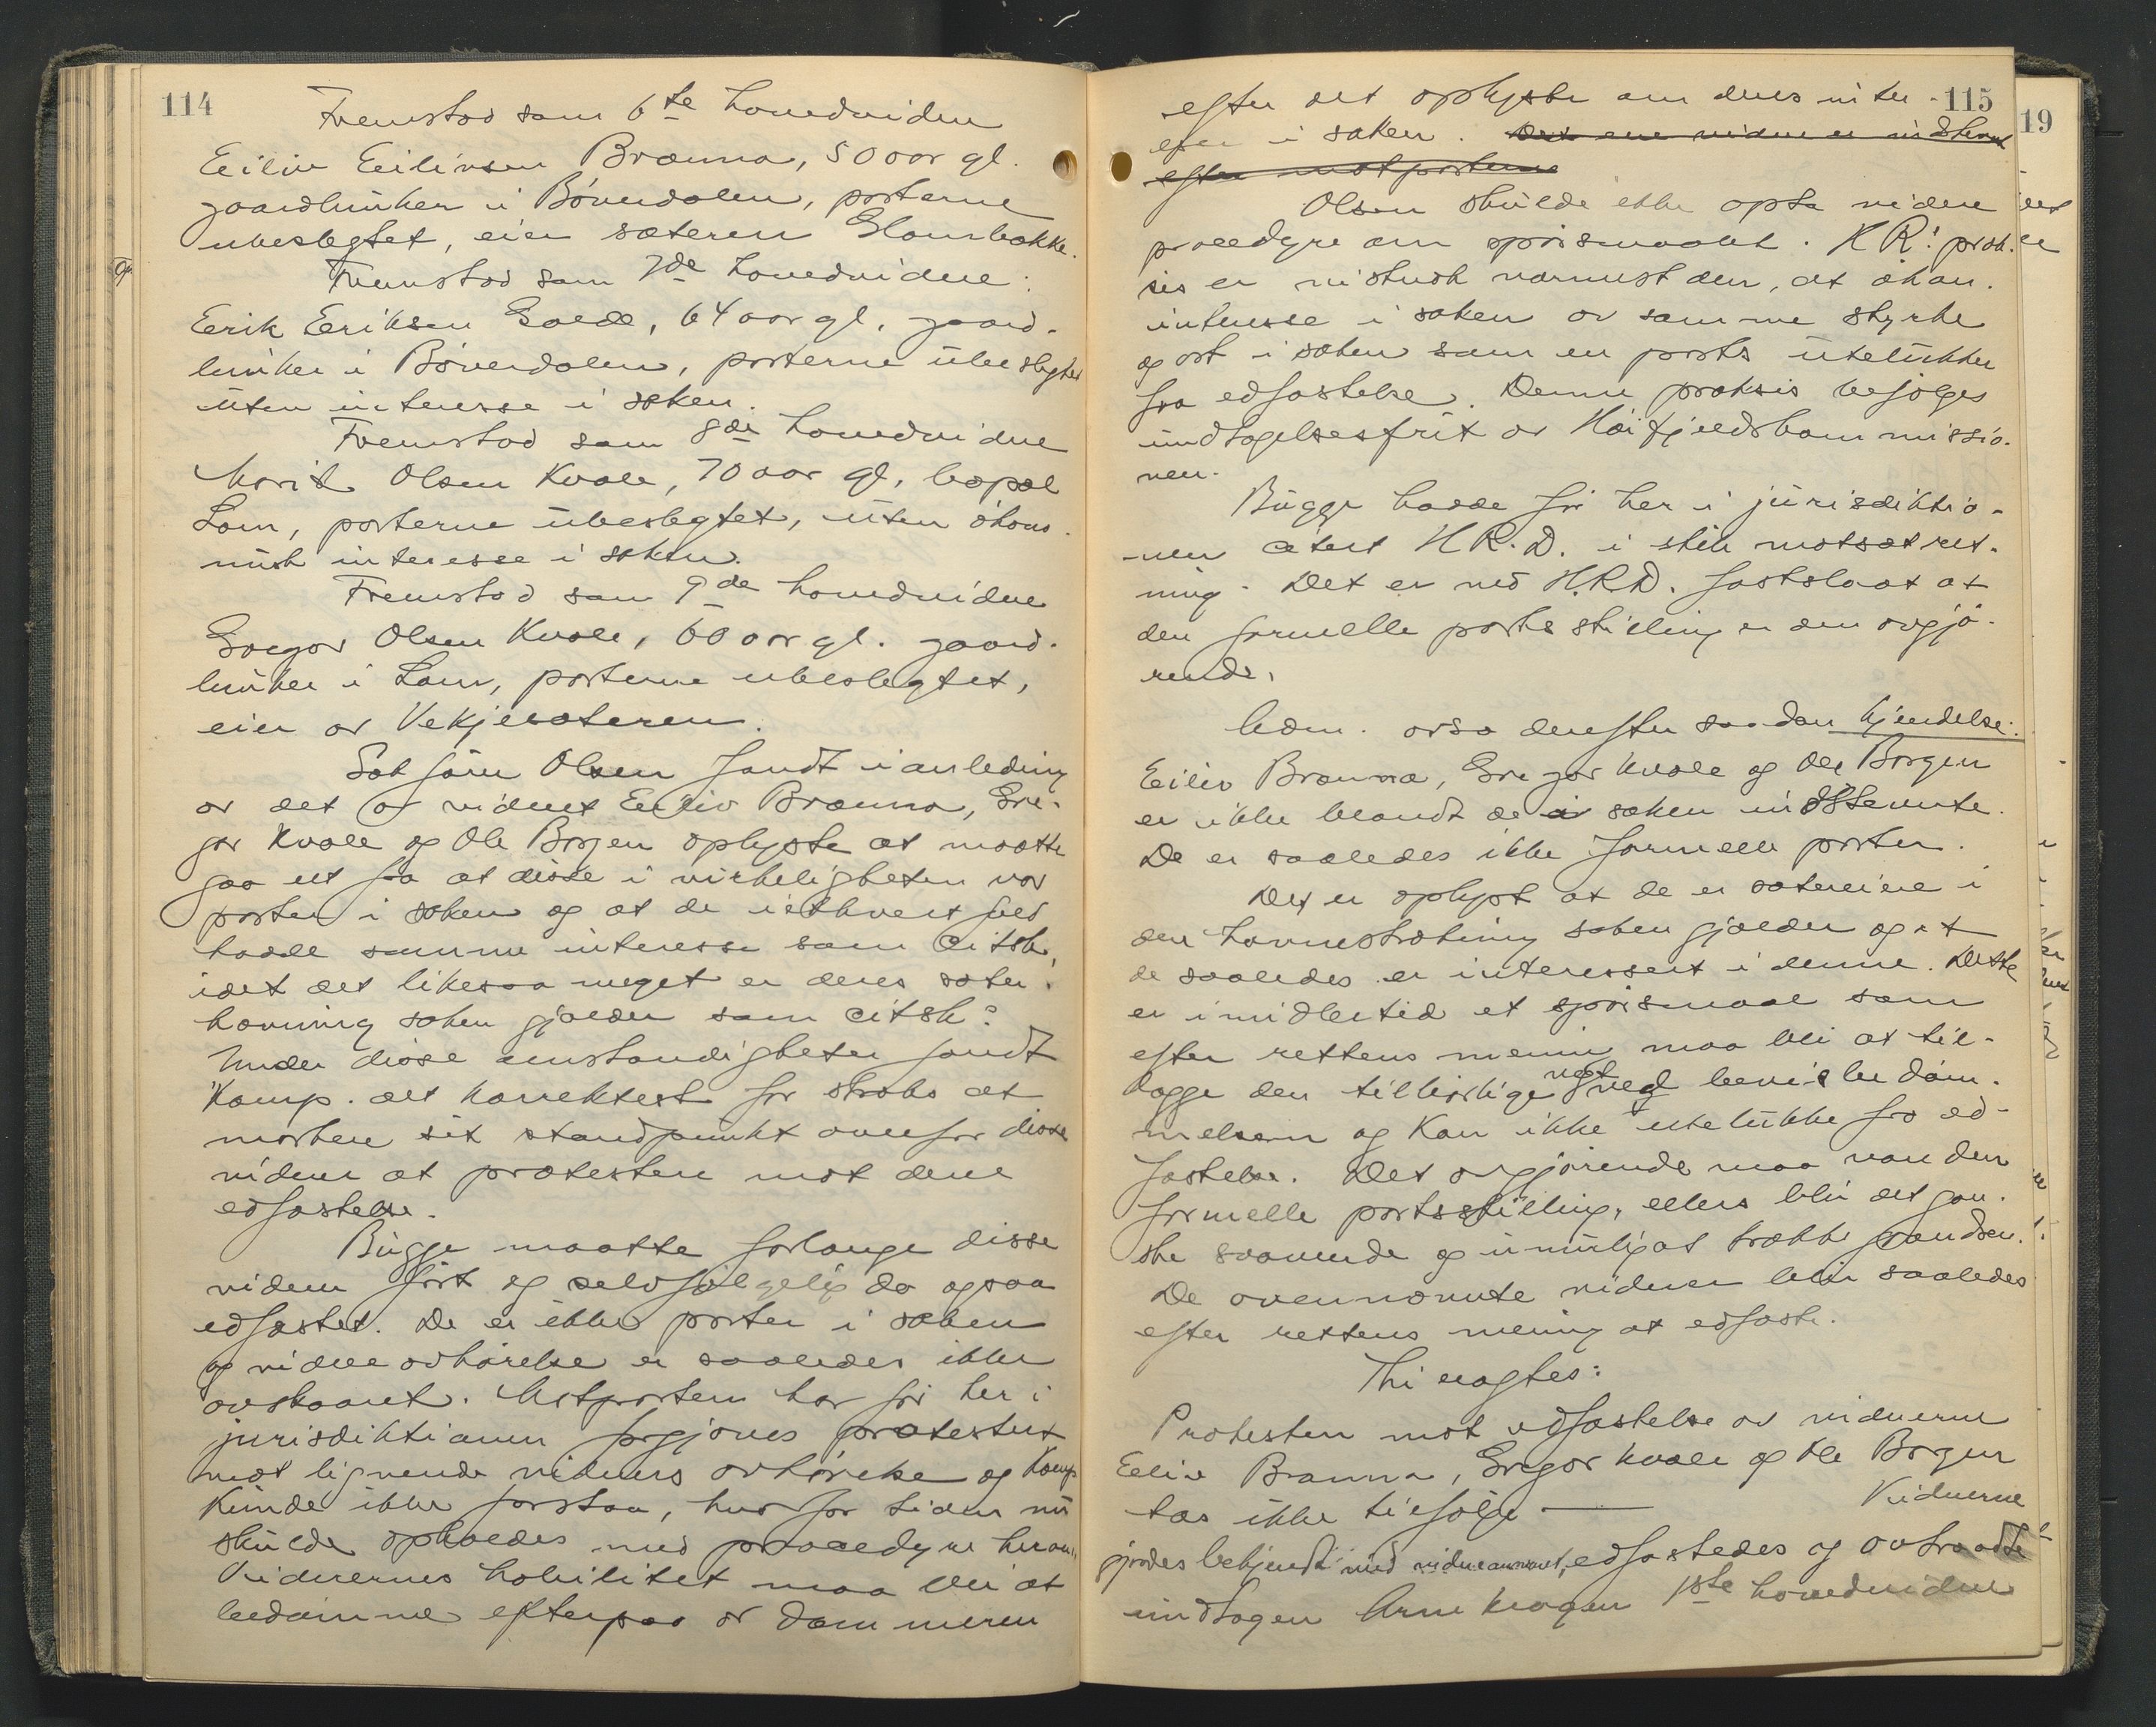 114
Fremstod som 6te hovedvidne
Eiliv Eilivsen Brænna, 50 aar gl.
gaardbruker i Bøverdalen, parterne
ubeslegtet, eier sæteren Glombakke.
Fremstod som 7de hovedvidne:
Erik Eriksen Galde, 64 aar gl., gaard-
bruker i Bøverdalen, parterne ubeslegtet
uten interesse i saken.
Fremstod som 8de hovedvidne
Marit Olsen Kvale, 70 aar gl., bopæl
Lom, parterne ubeslegtet, uten økono-
misk interesse i saken.
Fremstod som 9de hovedvidne
Gregor Olsen Kvale, 60 aar gl. gaard-
bruker i Lom, parterne ubeslegtet,
eier av Vekjesæteren.
Sakfører Olsen fandt i anledning
av det av vidnet Eiliv Brænna, Gre-
gor Kvale og Ole Borgen oplyste at maatte
gaa ut fra at disse i virkeligheten var
parter i saken og at de i ethvert fald
hadde samme interesse som citsk,
idet det likesaa meget er deres sæter-
havning saken gjælder som citsk:
Under disse omstændigheter fandt
komp. det korrektest for straks at
markere sit standpunkt overfor disse
vidner at protestere mot deres
edfæstelse.
Bugge maatte forlange disse
vidner ført og selvfølgelig da ogsaa
edfæstet. De er ikke parter i saken
og vidneavhørelse er saaledes ikke
avskaaret. Motparten har før her i
jurisdiktionen forgjæves protestert
mot lignende vidners avhørelse og komp.
kunde ikke forstaa, hvorfor tiden nu
skulde opholdes med procedyre herom.
Vidnernes habilitet maa bli at
bedømme efterpaa av dommeren
115
efter det oplyste om deres inter-
esse i saken. Det ene vidne er indstevnt
efter motparterne
Olsen skulde ikke opta videre
procedyre om spørsmaalet. H.R.: prak-
sis er nistnok nærmest den, at økon.
interesse i saken av samme styrke
og art i saken som en parts utelukker
fra edfæstelse. Denne praksis befølges
undtagelsesfrit av Høifjeldskommissio-
nen.
Bugge hadde før her i jurisdiktio-
nen citert H.R.D. i stik motsat ret-
ning. Det er ved H.R.D. fastslaat at
den formelle partsstilling er den avgjø-
rende.
Adm. avsa derefter saadan kjendelse:
Eiliv Brænna, Gregor Kvale og Ole Borgen
er ikke blandt de i saken indstevnte.
De er saaledes ikke formelle parter.
Det er oplyst at de er sætereiere i
den havnestrækning saken gjælder og at
de saaledes er interessert i denne. Dette
er imidlertid et spørsmaal som
efter rettens mening maa bli at til-
lægge den tilbørlige vegt ved bevisbedøm-
melsen og kan ikke utelukke fra ed-
fæstelse. Det avgjørende maa være den
formelle partsstilling, ellers blir det gan-
ske svævende og umulig at trække grænsen.
De ovennævnte vidner blir saaledes
efter rettens mening at edfæste.
Thi eragtes:
Protesten mot edfæstelse av vidnerne
Eiliv Brænna, Gregor Kvale og Ole Borgen
tas ikke tilfølge
Vidnerne
gjordes bekjendt med vidneansvaret, edfæstedes og avtraadte
undtagen Arne 1ste hovedvidne
19